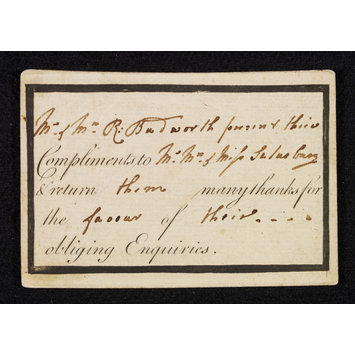 Mr. & Mrs. R. Budworth present their
Compliments to Mr. Mrs. & Miss Salusbury
& return them many thanks for
the favour of their - - - -
obliging Enquiries.